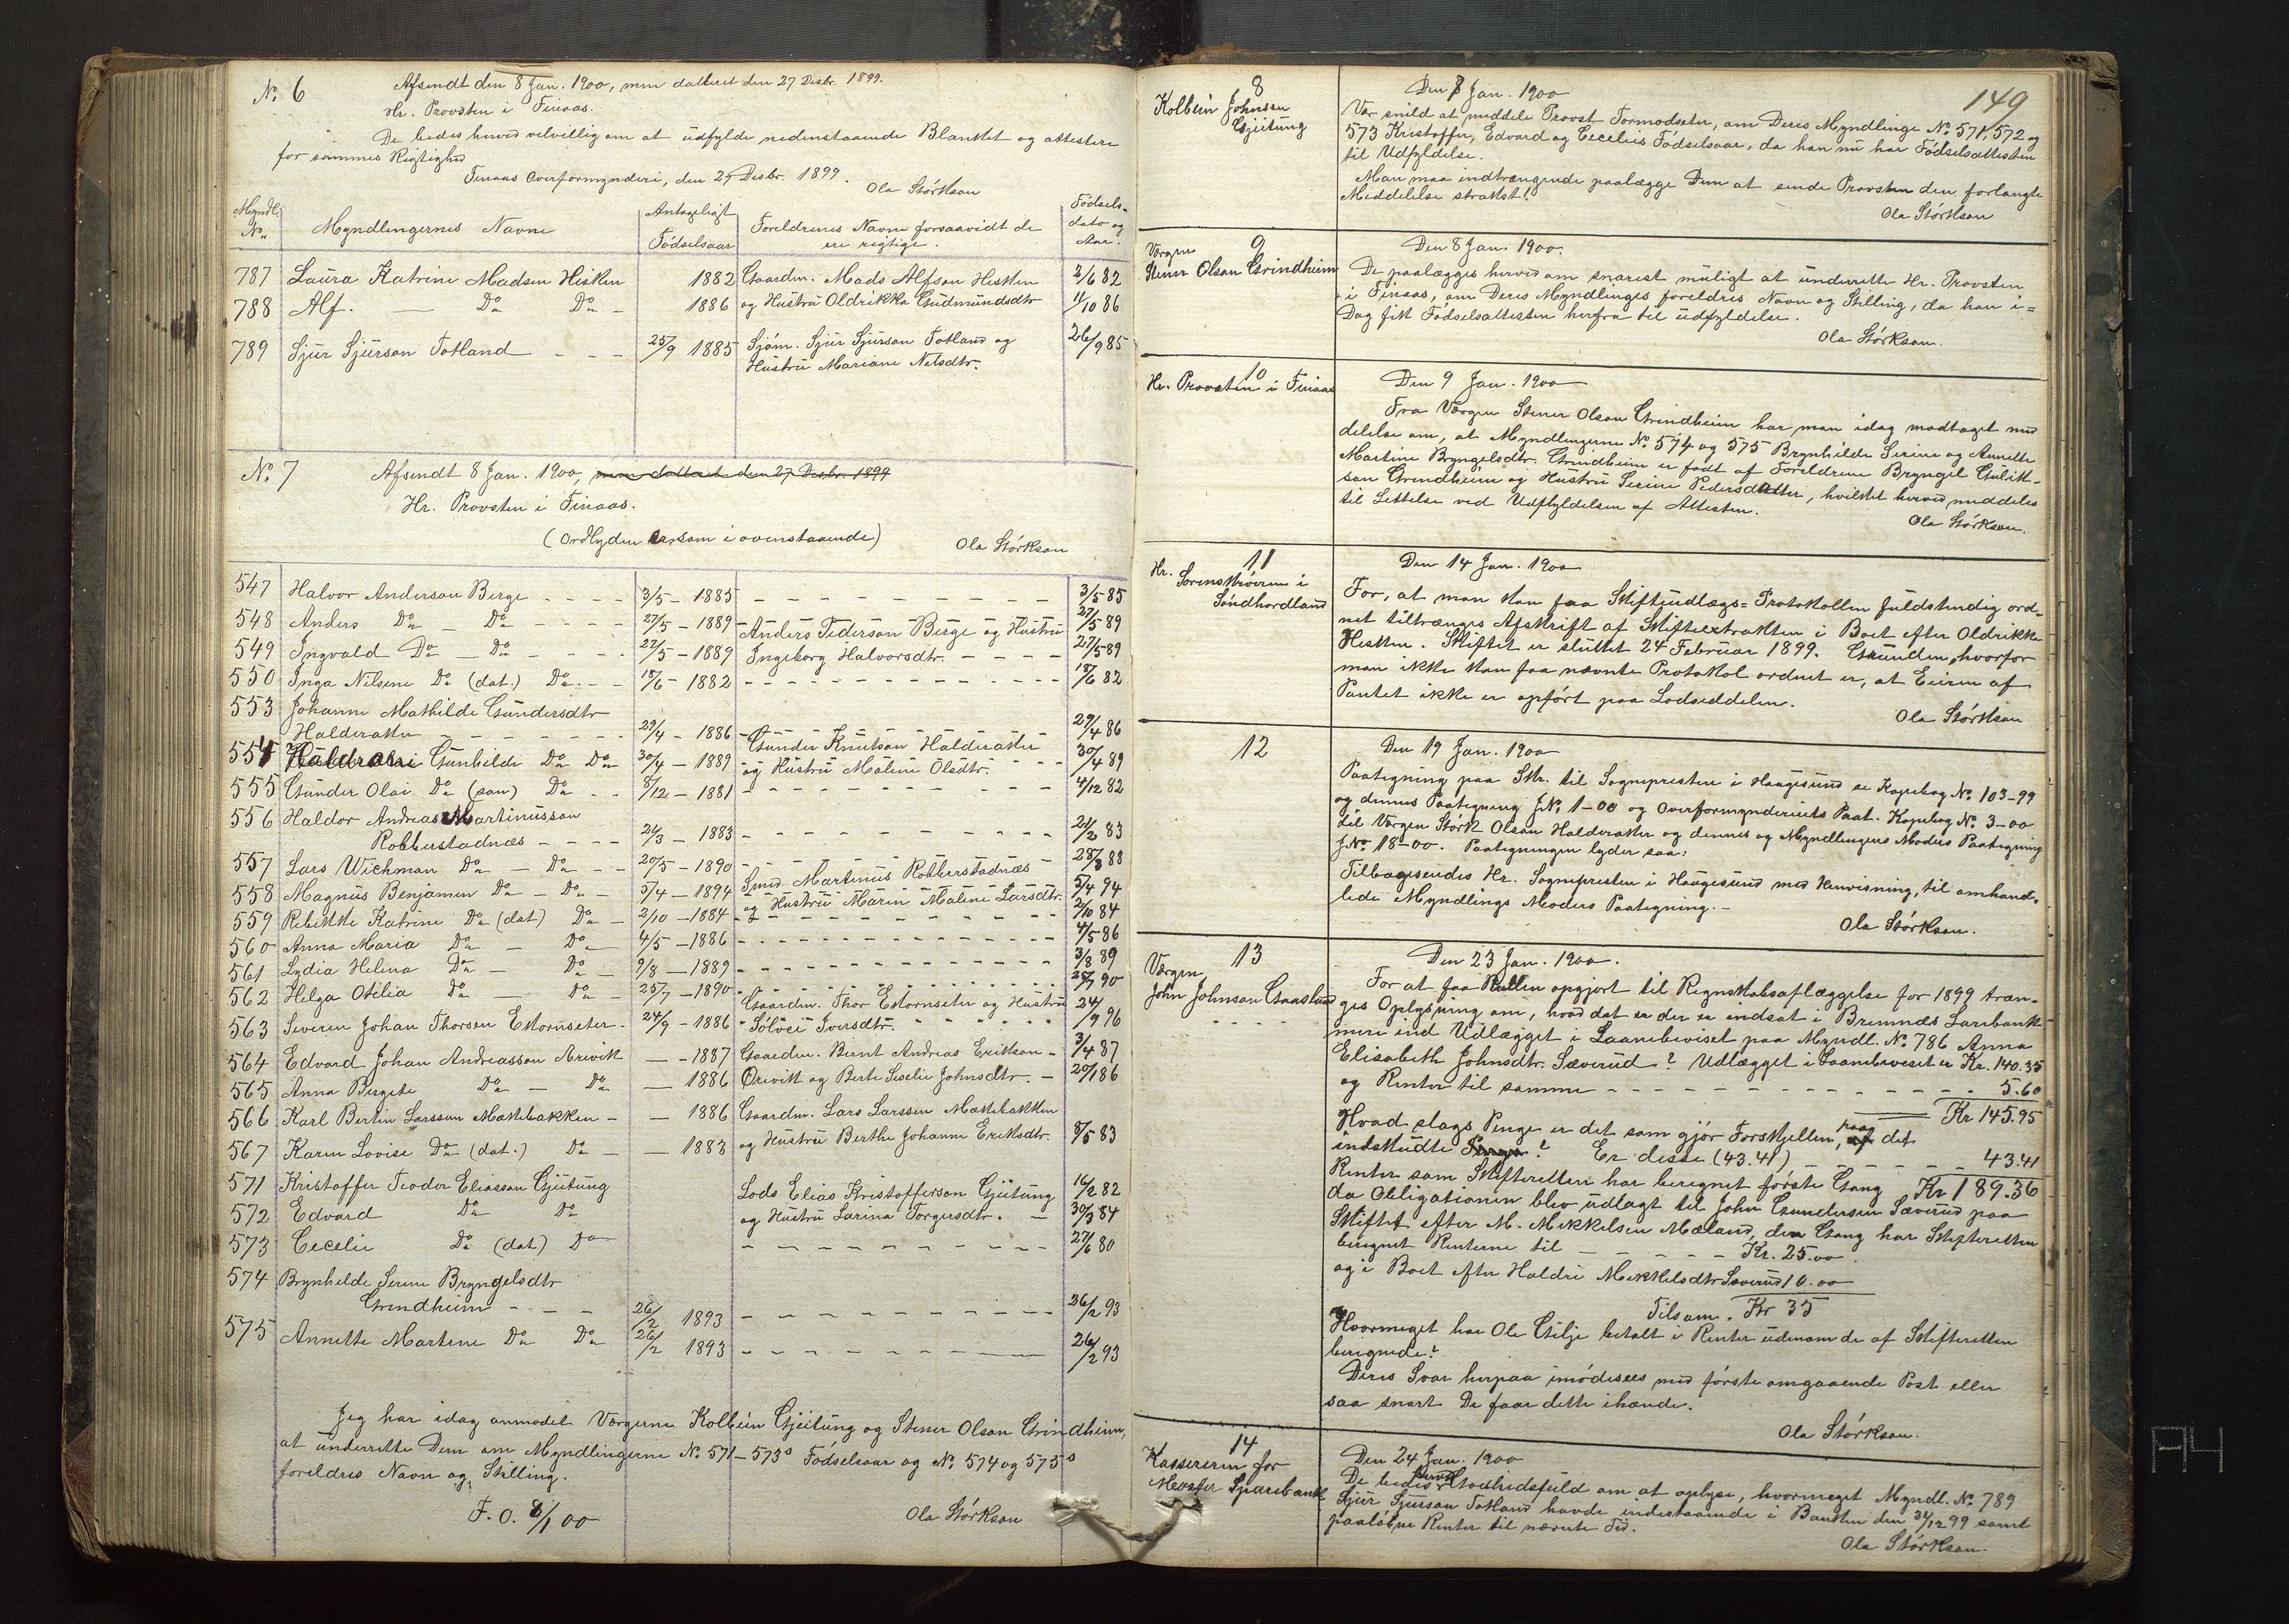 No. 6
Afsendt den 8 Jan. 1900, men datteret den 27 Desbr. 1899.
Hr. Provsten i Finaas.
De bedes herved velvillig om at udfylde nedenstaaende Blanket og attestere
for sammes Rigtighed
Finaas Overformynderi, den 27 Desbr. 1899.
Ola Störkson
Myndl. No. Myndlingernes Navne Antageligt Födselsaar Foreldrenes Navne forsaavidt de ere rigtige. Födsels-dato og Aar.
787 Laura Katrine Madsen Hisken 1882 Gaardm. Mads Alfson Hisken 2/6 82
788 Alf. — Do Do - 1886 og Hustru Oldrikka Gudmundsdtr 11/10 86
789 Sjur Sjurson Totland - - - 25/9 1885 Sjöm. Sjur Sjurson Totland og 26/9 85
Hustru Mariane Nelsdtr.
No. 7 Afsendt 8 Jan. 1900, men datteret den 27 Desbr. 1899
Hr. Provsten i Finaas.
(Ordlyden er som i ovenstaaende)
Ola Störkson
547 Halvor Anderson Berge - - - - 3/5 - 1885 - - - - 3/5 85
548 Anders Do - Do - - - - 27/5 - 1889 Anders Pederson Berge og Hustru 27/5 89
549 Ingvald Do - Do - - - - 27/5 - 1889 Ingeborg Halvorsdtr. - - - - 27/5 89
550 Inga Nilsine Do (dat.) Do - - 18/6 - 1882 - - - - 18/6 82
553 Johanne Mathilde Gundersdtr
Halderaker - - - - 29/4 - 1886 - - - - 29/4 86
554 Gunhilde Do Do 30/4 - 1889 Gunder Knutson Halderaker 30/4 89
og Hustru Maline Olsdtr. - - -
555 Gunder Olai Do (son) Do - - 8/12 - 1881 - - - - 4/12 82
556 Haldor Andreas Martinusson
Robberstadnæs - - - - 21/3 - 1883 - - - - 21/2 83
557 Lars Wichman Do - Do - - 20/5 - 1890 - - - - 28/8 88
558 Magnus Benjamin Do - Do - 5/4 - 1894 Smed Martinus Robberstadnæs 5/4 94
og Hustru Marin Maline Larsdtr.
559 Rebekke Katrine Do (dat) Do - 2/10 - 1884 - - - - 2/10 84
560 Anna Maria Do - Do 4/5 - 1886 - - - - 4/5 86
561 Lydia Helena Do - Do - 9/8 - 1889 - - - - 3/8 89
562 Helga Otilia Do - Do - 25/7 - 1890 - - - - 28/7 90
563 Severin Johan Thorsen Ekornseter - 24/9 - 1886 Gaardm. Thor Ekornseter og Hustru 24/9 96
Sölvei Iversdtr. - - -
564 Edvard Johan Andreasson Ørevik - - 1887 Gaardm. Bernt Andreas Erikson - 3/4 87
565 Anna Birgete Do - Do - 1886 Ørevik og Berte Siselie Johnsdtr. - 20/1 86
566 Karl Bertin Larsson Mækebakken - - 1886 Gaardm. Lars Larsson Mækebakken
567 Karen Lovise Do (dat.) Do - - 1883 og Hustru Berthe Johanne Eriksdtr. 8/5 83
571 Kristoffer Teodor Eliasson Gjeitung Lods Elias Kristofferson Gjeitung 16/2 82
572 Edvard Do Do og Hustru Larina Torgersdtr. - 30/3 84
573 Cecelie Do (dat) Do - - - - 27/6 80
574 Brynhilde Serine Bryngelsdtr
Grindheim - - - 26/2 1893 - - - - 26/2 93
575 Annette Martine Do Do 26/2 1893 - - - - 26/2 93
Jeg har idag anmodet Værgerne Kolbein Gjeitung og Stener Olson Grindheim,
at underrette Dem om Myndlingerne No. 571-573s Födselsaar og No. 574 og 575s
foreldres Navn og Stilling.
F. O. 8/1 00
Ola Störkson
149
8
Kolbein Johnsen
Gjeitung
Den 8 Jan. 1900
Vær snild at meddele Provst Tormodseter, om Deres Myndlinge No. 571, 572 og
573 Kristoffer, Edvard og Cecelies Födselsaar, da han nu har Födselsattesten
til Udfyldelse.
Man maa indtrængende paalægge Dem at sende Provsten den forlangte
Meddelelse straks!
Ola Störkson
9
Værgen
Stener Olson Grindheim
Den 8 Jan. 1900.
De paalægges herved om snarest muligt at underrette Hr. Provsten
i Finaas, om Deres Myndlinges foreldres Navn og Stilling, da han i=
Dag fik Födselsattesten herfra til udfyldelse.
Ola Störkson.
10
Hr. Provsten i Finaas
Den 9 Jan. 1900
Fra Værgen Stener Olson Grindheim har man idag modtaget med
delelse om, at Myndlingerne No. 574 og 575 Brynhilde Serine og Annette
Martine Bryngelsdtr. Grindheim er født af Foreldrene Bryngel Gulik-
son Grindheim og Hustru Serine Pedersdatter, hvilket herved meddeles
til Lettelse ved Udfyldelsen af Attesten.
Ola Störkson.
11
Hr. Sorenskriveren i
Söndhordland
Den 14 Jan. 1900
For, at man kan faa Skifteudlægs= Protokollen fuldstendig ord-
net tiltrænges Afskrift af Skifteextrakten i Boet efter Oldrikke
Hisken. Skiftet er sluttet 24 Februar 1899. Grunden, hvorfor
man ikke kan faa nævnte Protokol ordnet er, at Eieren af
Pantet ikke er opfört paa Lodseddelen.
Ola Störkson
12
Den 19 Jan. 1900
Paategning paa Skr. til Sognepresten i Haugesund se Kopibog No. 103-99
og dennes Paategning JNo. 1-00 og Overformynderiets Paat. Kopibog No. 3-00
til Værgen Störk Olson Halderaker og dennes og Myndlingens Moders Paategning
JNo. 18-00. Paategningen lyder saa:
Tilbagesendes Hr. Sognepresten i Haugesund med Henvisning, til omhand-
lede Myndlings Moders Paategning.-
Ola Störkson.
13
Værgen
John Johnson Gaasland
- - - -
Den 23 Jan. 1900.
For at faa Rullen opgjort til Regnskabsaflæggelse for 1899 træn-
ges Oplysning om, hvad det er der er indsat i Bremnæs Sarebank
mere ind Udlægget i Laanebeviset paa Myndl. No. 786 Anna
Elisabeth Johnsdtr. Sæverud? Udlægget i Laanebeveset er Kr. 140.35
og Renter til samme - - - - - - - 5.60
Kr 145.95
Hvad slags Penge er det som gjör Forskjellen, paa det
indskudte? Er desse (43.41) - - - - - 43.41
Kr 189.36
Renter som Skifteretten har beregnet förste Gang
da Obligationen blev udlagt til John Gunderson Sæverud paa
Skiftet efter M. Mekkelsen Mæland, den Gang har Skifteretten
beregnet Renterne til - - - - - Kr. 25.00
og i Boet efter Haldri Mekkelsdtr Sæverud 10.00
Tilsam. Kr 35
Hvormeget har Ole Gilje betalt i Renter udenom de af Skifteretten
beregnede?
Deres Svar herpaa imödesees med förste omgaaende Post eller
saa snart De faar dette ihænde.
Ola Störkson.
14
Kassereren for
Sparebank
Den 24 Jan. 1900
De bedes herved Godhedsfuld om at oplyse, hvormeget Myndl. No. 789
Sjur Sjurson Totland havde indestaaende i Banken den 31/12 99 samt
paalöbne Renter til nævnte Tid.
Ola Störkson.